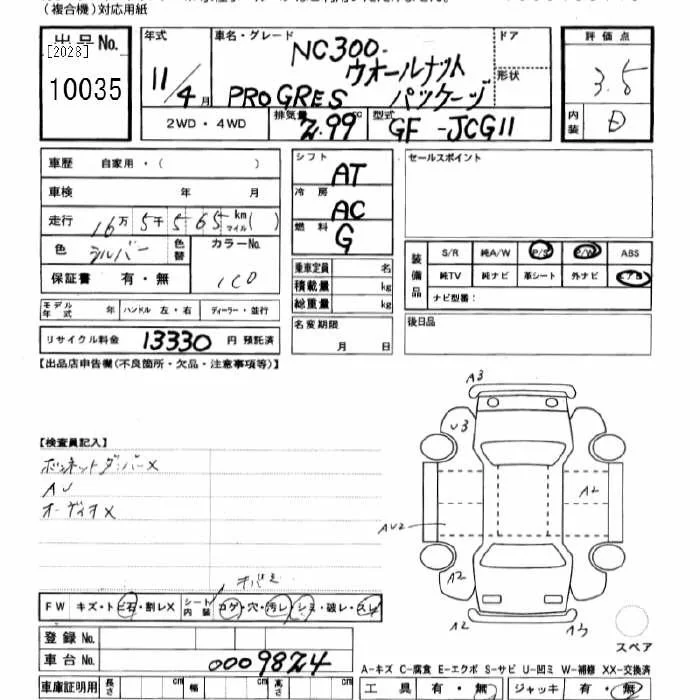 (複合機)対応用紙
出品No. [2028] 10035
年式 11/4 月
車名・グレード NC300 ウォールナット
PROGRES パッケージ
ドア
形状
評価点 3.5
内装 D
2WD・4WD 排気量 2.99 cc 型式 GF-JCG11
車歴 自家用・( )
車検 年 月
走行 16万 5千 565 km マイル ( )
色 シルバー 色替 カラーNo. 1C0
保証書 有・無
モデル年式 年 ハンドル 左・右 ディーラー・並行
リサイクル料金 13330 円 預託済
シフト AT
冷房 AC
燃料 G
乗車定員 名
積載量 kg
総重量 kg
名変期限 月 日
セールスポイント
装備品 S/R 純A/W P/S P/W ABS
純TV 純ナビ 革シート 外ナビ エアB
ナビ型番:
後日品
【出品店申告欄(不良箇所・欠品・注意事項等)】
【検査員記入】
ボンネットダンパーX
AU
オーディオX
A3
U3
A2
AU2
A2
A2
A3
スペア
FW キズ・トビ石・割レX シート内装 コゲ・穴・汚レ・シミ・破レ・スレ
登録No.
車台No. 0009824
車庫証明用 長さ cm 幅 cm 高さ cm
A-キズ C-腐食 E-エクボ S-サビ U-凹ミ W-補修 XX-交換済
工具 有・無 ジャッキ 有・無